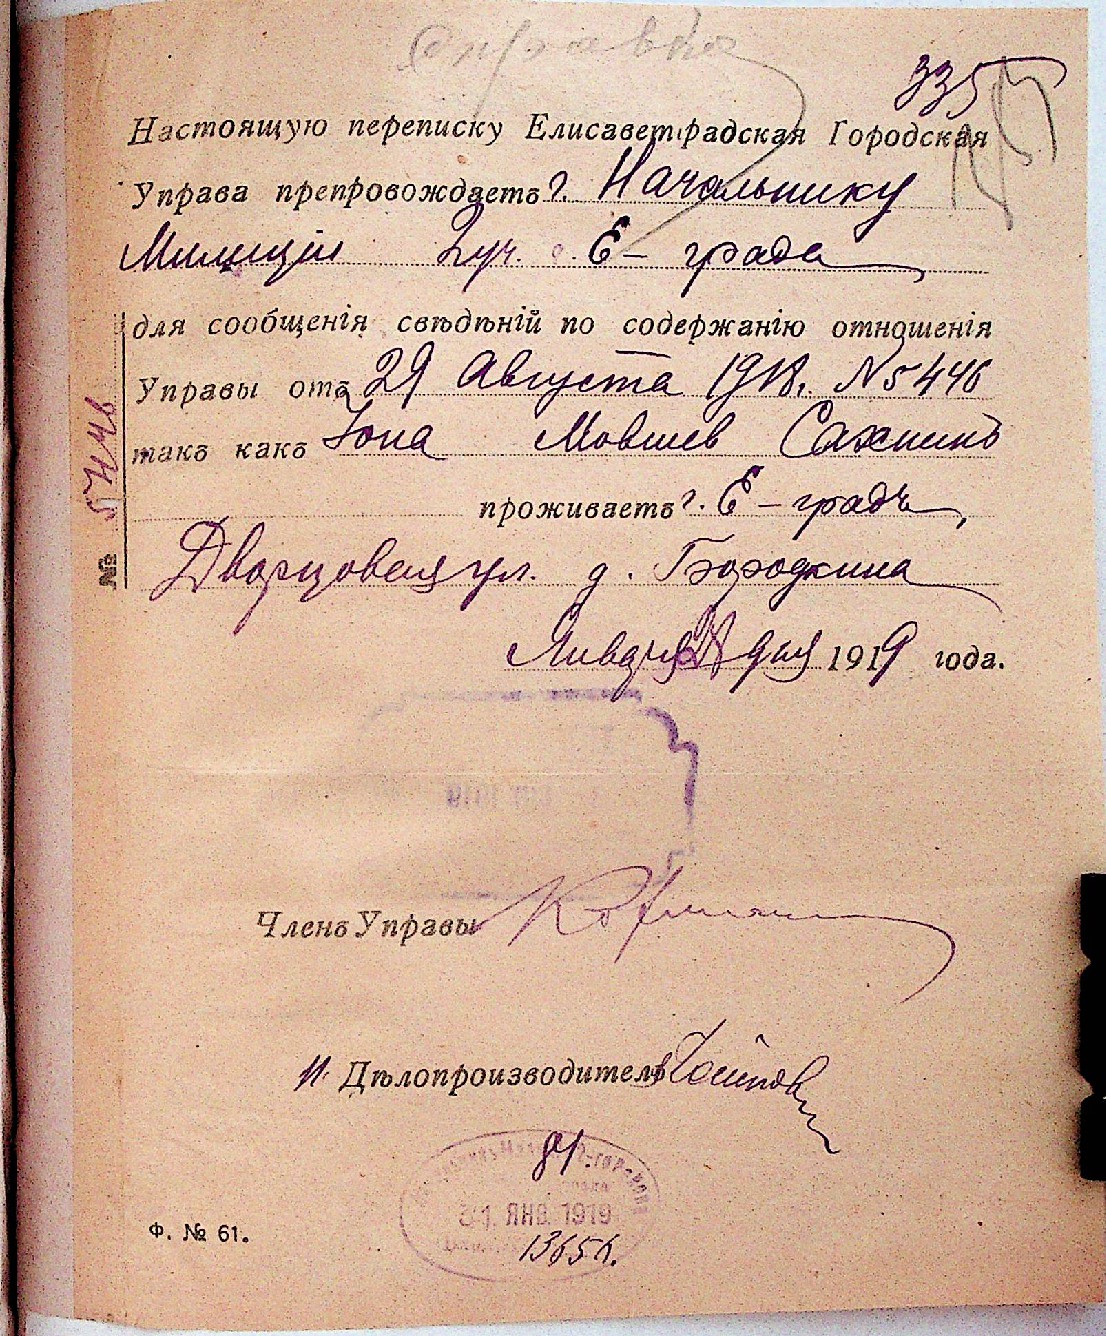 Справка
335
Настоящую переписку Елисаветградская Городская
Управа препровождаетъ г. Начальнику
Милиціи 2 уч. г. Е-града
для сообщенія свѣдѣній по содержанію отношенія
Управы отъ 29 Августа 1918. №5446
такъ какъ Іона Мовшев Сахнинъ
проживаетъ г. Е-градъ,
Дворцовая ул. д. Бородкина
Января 28 дня 1919 года.
№
Членъ Управы
И. Дѣлопроизводитель
31 ЯНВ. 1919
Ф. № 61.